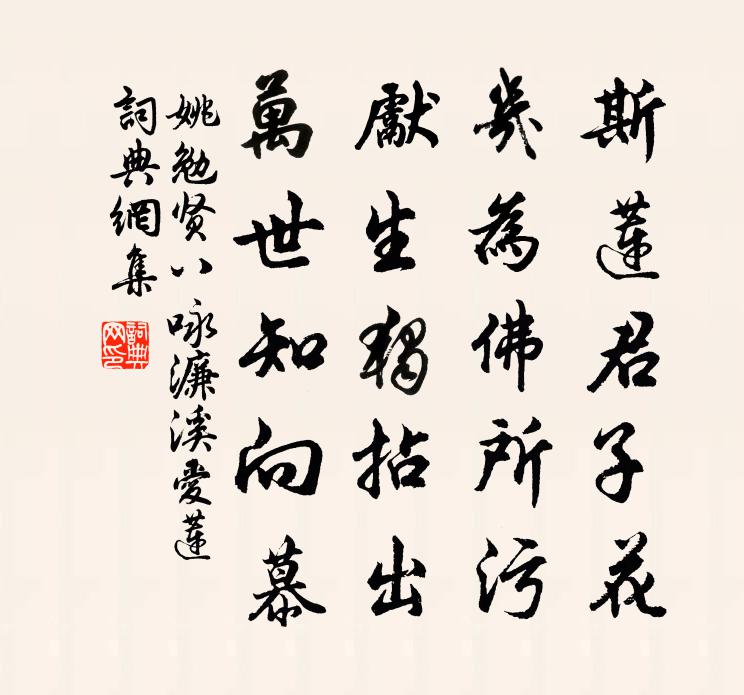 斯蓮君子花
幾為佛所污
獻生獨拈出
萬世知向慕
姚勉贤八咏濂溪愛蓮
詞典網集
詞典
网印